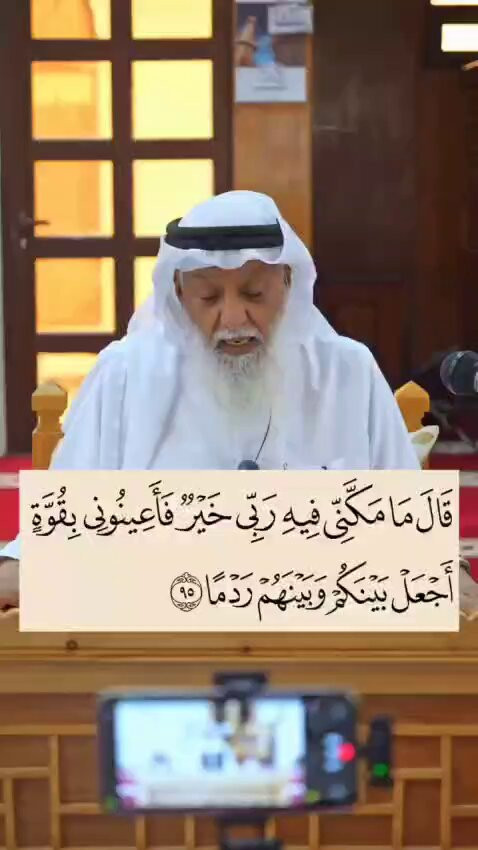 قَالَ مَا مَكَّنِّي فِيهِ رَبِّي خَيْرٌ فَأَعِينُونِي بِقُوَّةٍ
أَجْعَلْ بَيْنَكُمْ وَبَيْنَهُمْ رَدْمًا ۝٩٥